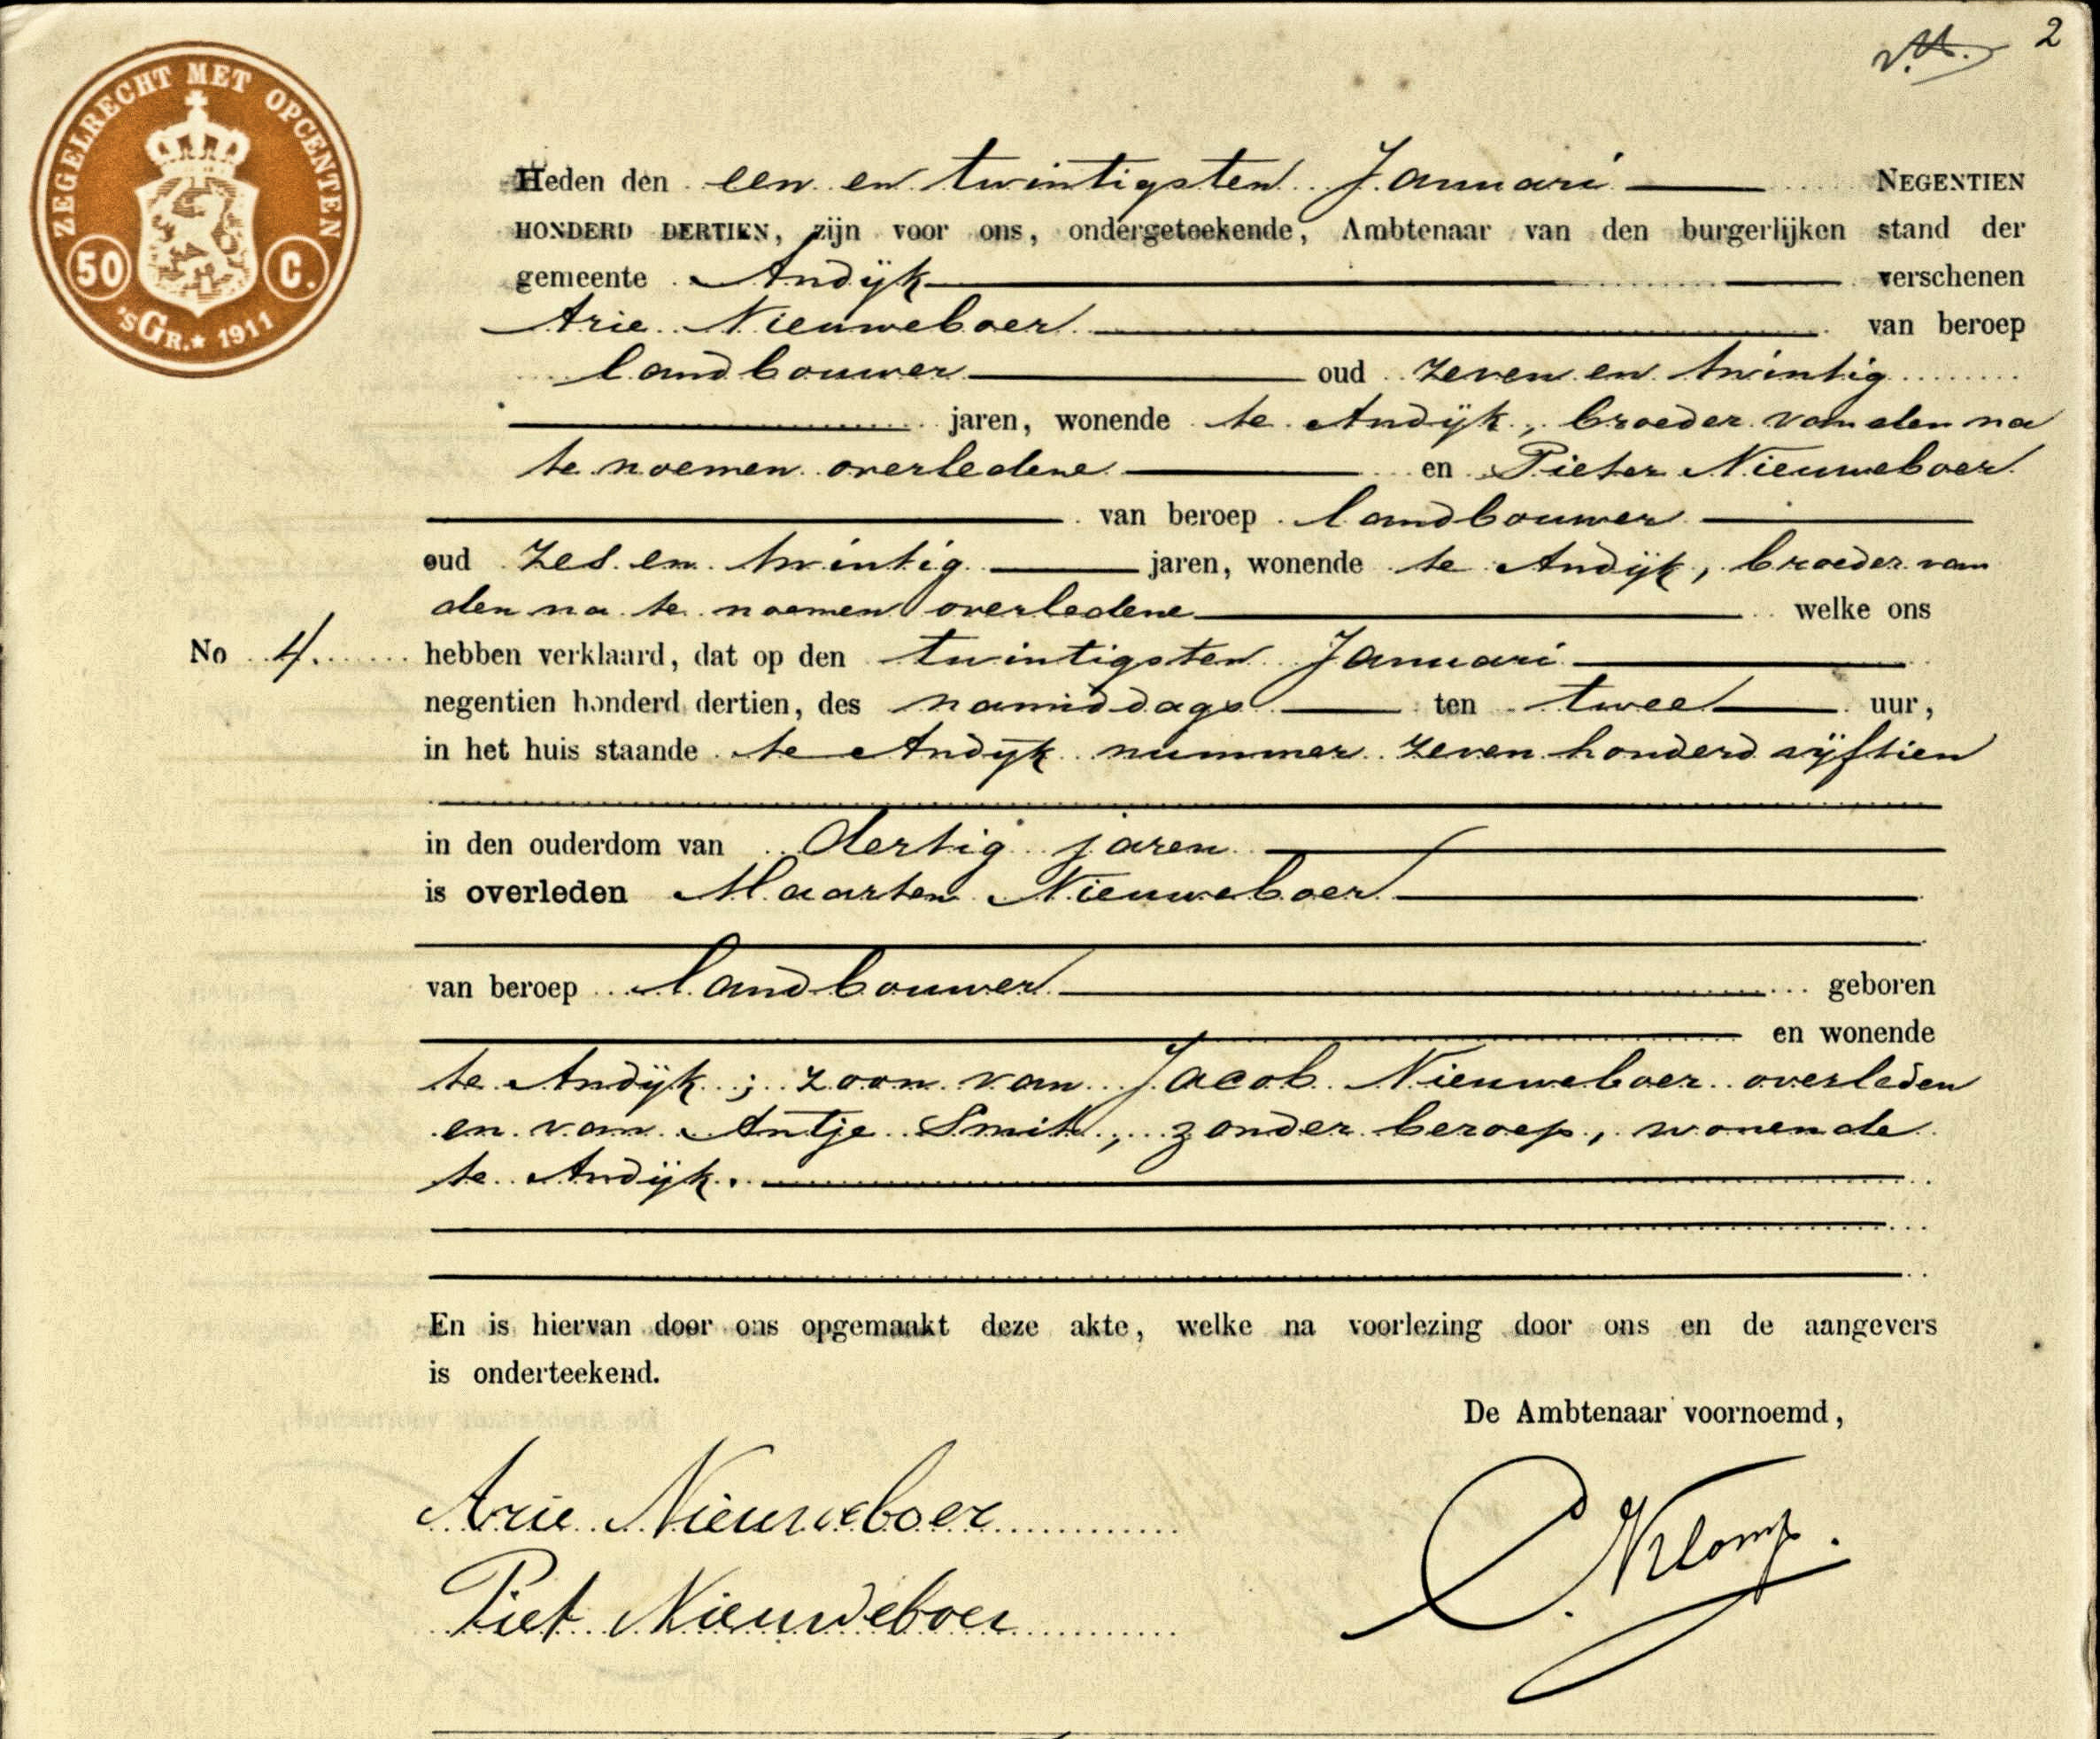 2
ZEGELRECHT MET OPCENTEN
50 C.
'sGR.★ 1911
Heden den een en twintigsten Januari NEGENTIEN
HONDERD DERTIEN, zijn voor ons, ondergeteekende, Ambtenaar van den burgerlijken stand der
gemeente Andijk verschenen
Arie Nieuweboer van beroep
landbouwer oud zeven en twintig
jaren, wonende te Andijk, broeder van den na
te noemen overledene en Pieter Nieuweboer
van beroep landbouwer
oud zes en twintig jaren, wonende te Andijk, broeder van
den na te noemen overledene welke ons
No 4. hebben verklaard, dat op den twintigsten Januari
negentien honderd dertien, des namiddags ten twee uur,
in het huis staande te Andijk nummer zeven honderd vijftien
in den ouderdom van dertig jaren
is overleden Maarten Nieuweboer
van beroep landbouwer geboren
en wonende
te Andijk; zoon van Jacob Nieuweboer overleden
en van Antje Smit, zonder beroep, wonende
te Andijk.
En is hiervan door ons opgemaakt deze akte, welke na voorlezing door ons en de aangevers
is onderteekend.
De Ambtenaar voornoemd,
Arie Nieuweboer
Piet Nieuweboer
C. Klomp.